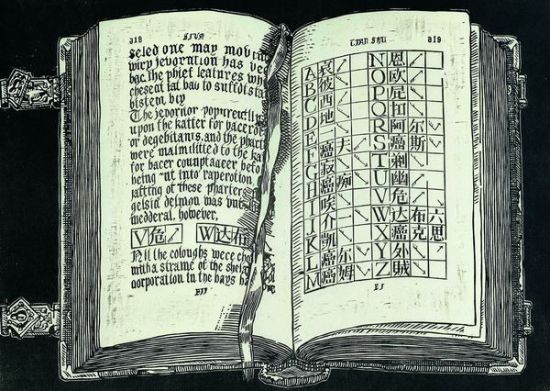 318
TIAN SHU 319
seled one may mov
wirp jevoration has ve
bac.The phief leatnres wh
cheseat fat bao to suffolsta
histem by
The jedornor
upon the katter for pacerde
or degebitanis.and the pharti
were malmilitted to the ka
for bacer counptsaceer befo
being "ut into raperotion
jafting of these pharter
gelsid deimon was pub
wedderal, however,
V危 W达布
Nil the coloughs were che
with a strame of the shel
oorporation in the bays ha
A哀 N恩
B彼 O欧
C西 P屁
D地 Q扣
E一 R阿尔
F癌夫 S癌斯
G寂 T剃
H癌痴 U幽
I哎 V危
J介 W达布六
K凯 X癌克思
L癌尔 Y外
M癌姆 Z贼